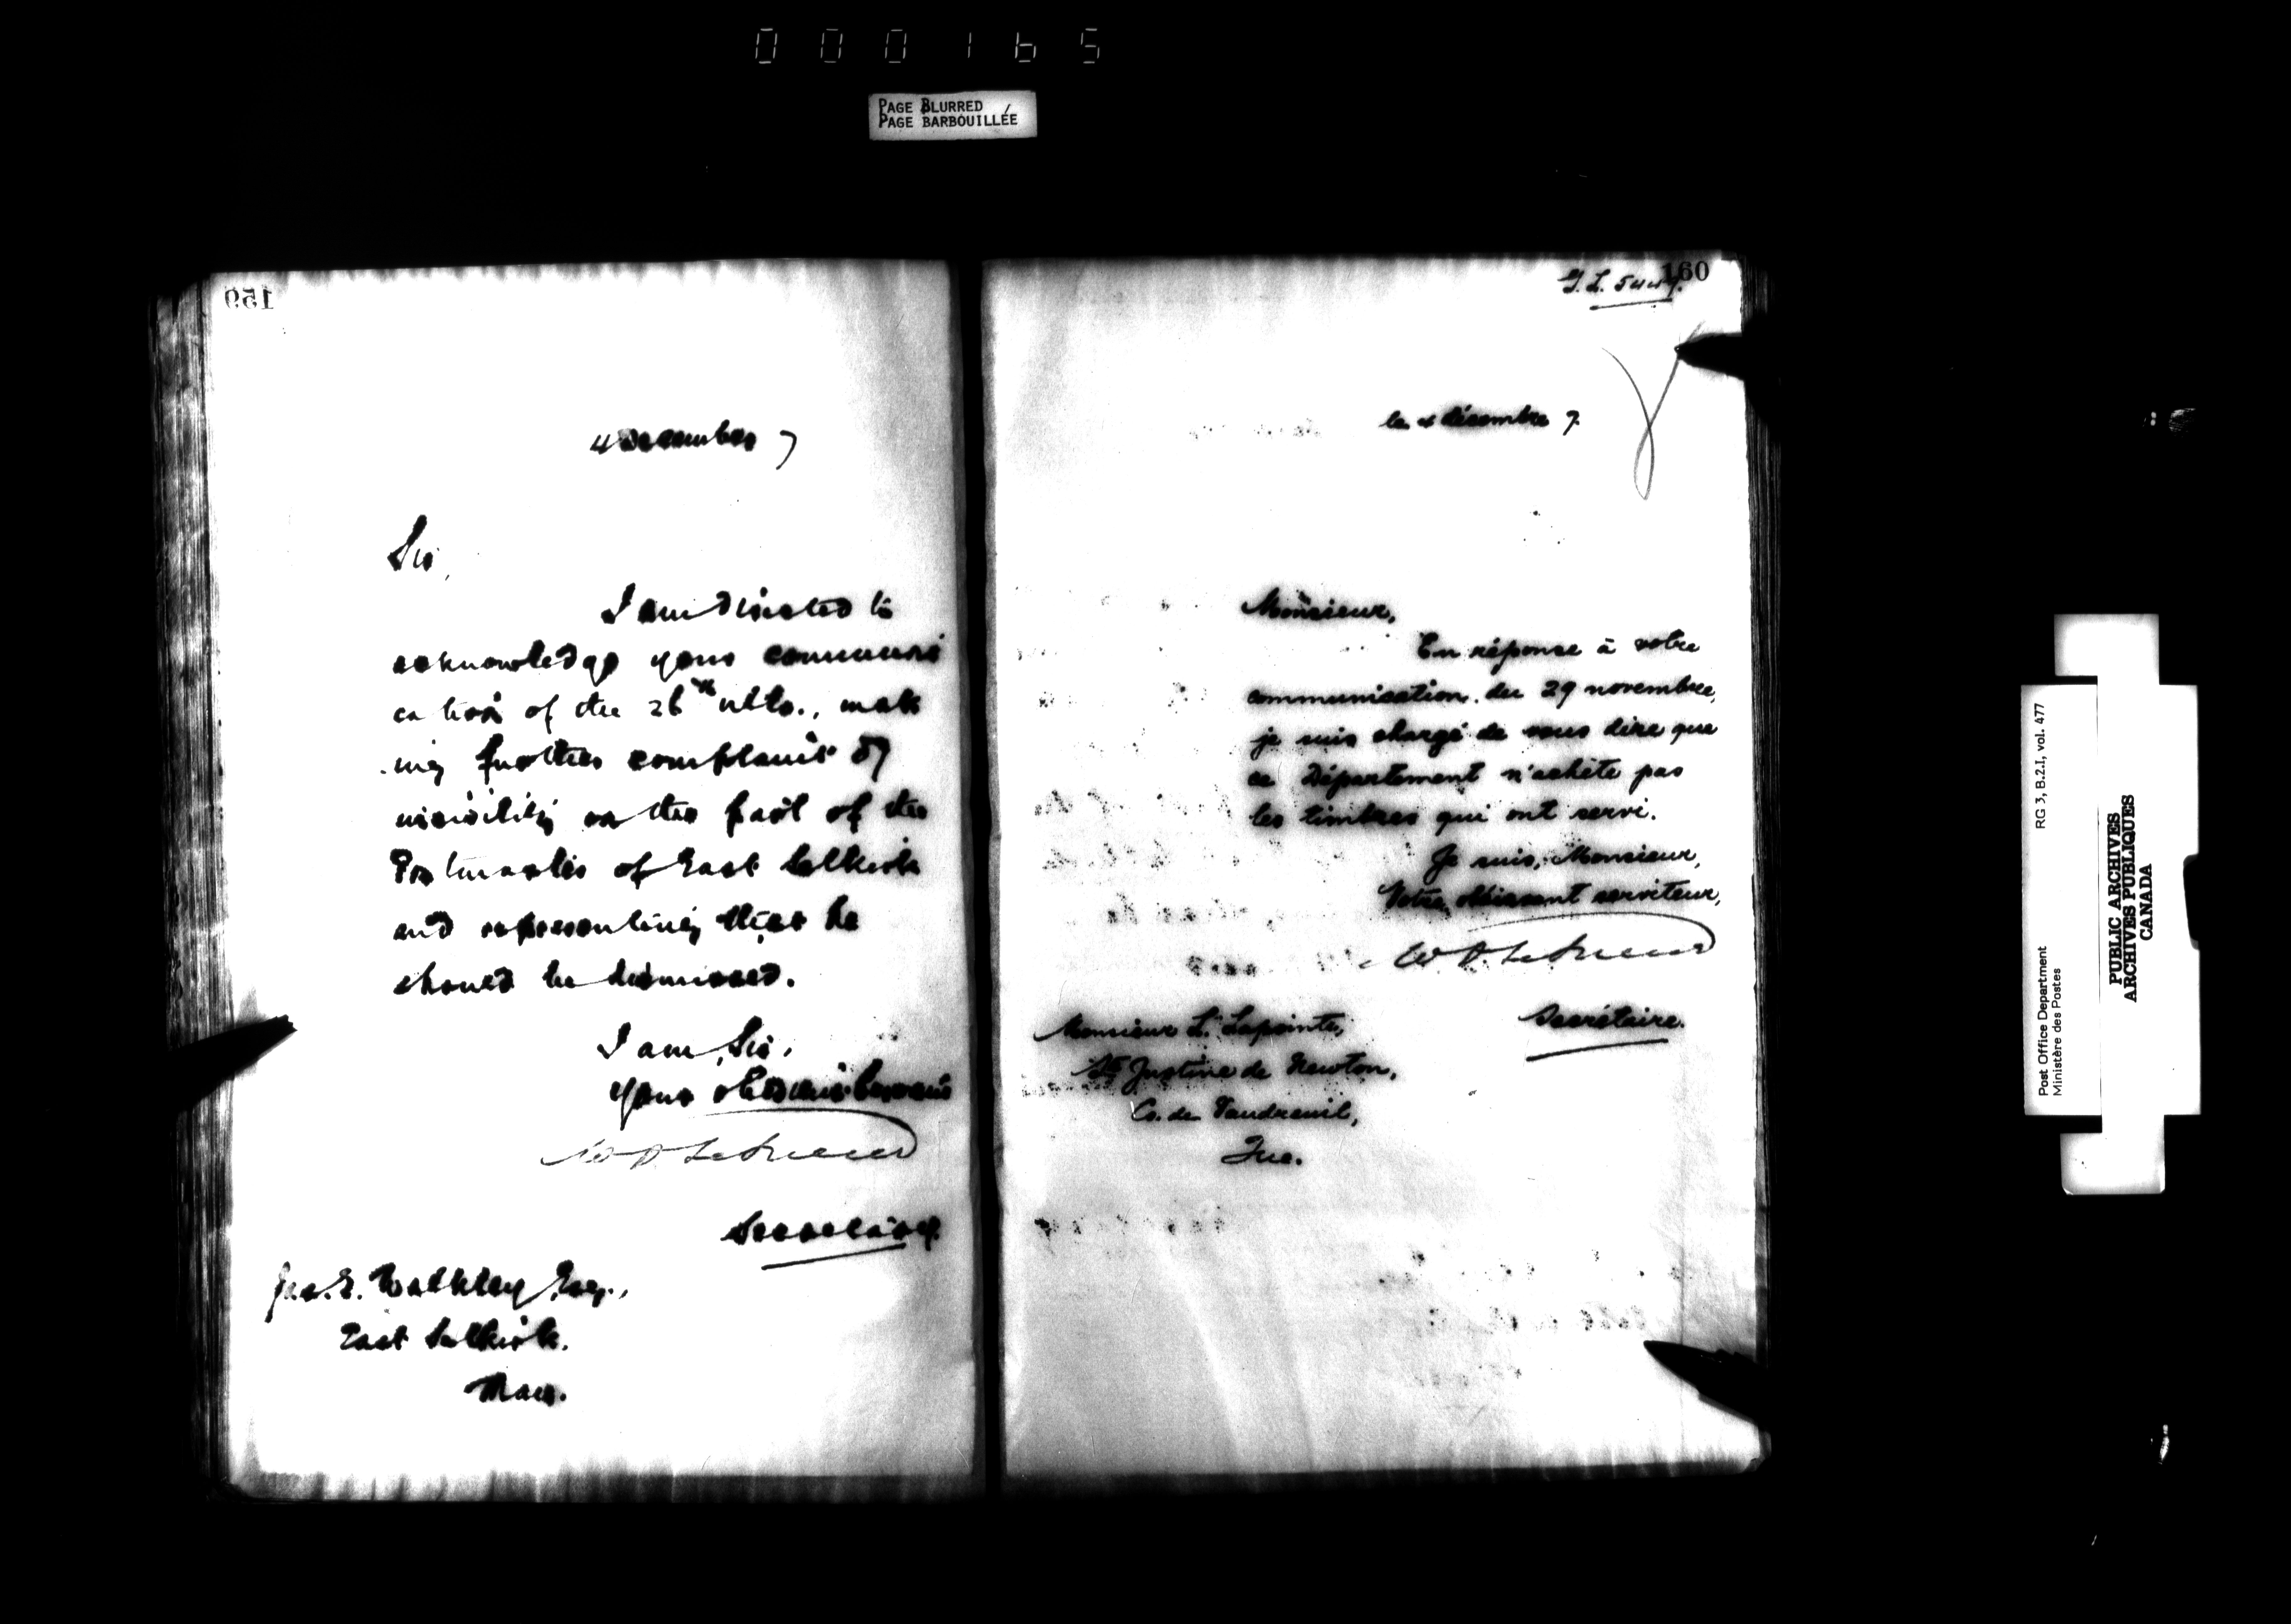 000165
PAGE BLURRED
PAGE BARBOUILLÉE
159
4 December 7
Sir,
I am directed to
acknowledge your communi
cation of the 26th ulto., mak
ing further complaint of
incivility on the part of the
Postmaster of East Selkirk
and representing that he
should be dismissed.
I am, Sir,
Your obedient Servant
Secretary.
East Selkirk.
Man.
160
le 4 décembre 7.
Monsieur,
En réponse à votre
communication du 29 novembre,
je suis chargé de vous dire que
ce Département n'achète pas
les timbres qui ont servi.
Je suis, Monsieur,
Votre obéissant serviteur,
Secrétaire.
Monsieur L. Lapointe,
Ste Justine de Newton,
Co. de Vaudreuil,
Que.
Post Office Department
Ministère des Postes
RG 3, B.2.I, vol. 477
PUBLIC ARCHIVES
ARCHIVES PUBLIQUES
CANADA